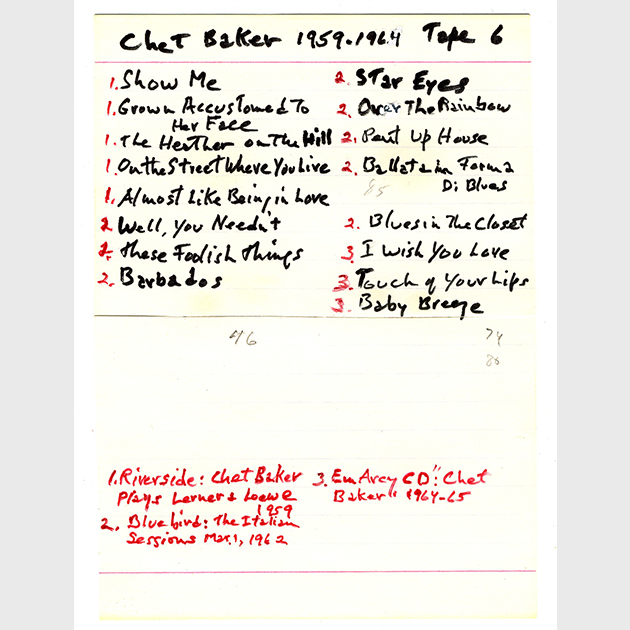 Chet Baker 1959-1964 Tape 6
1. Show Me
1. Grown Accustomed To
Her Face
1. The Heather on The Hill
1. On the Street Where You Live
1. Almost Like Being in Love
2. Well, You Needn't
2. These Foolish Things
2. Barbados
2. STar Eyes
2. Over The Rainbow
2. Pent Up House
2. Ballata in Forma
Di Blues
85
2. Blues in The Closet
3. I Wish You Love
3. Touch of Your Lips
3. Baby Breeze
46
74
1. Riverside: Chet Baker
Plays Lerner & Loewe
1959
2. Bluebird: The Italian
Sessions Mar. 1, 1962
3. EmArcy CD: "Chet
Baker" 1964-65